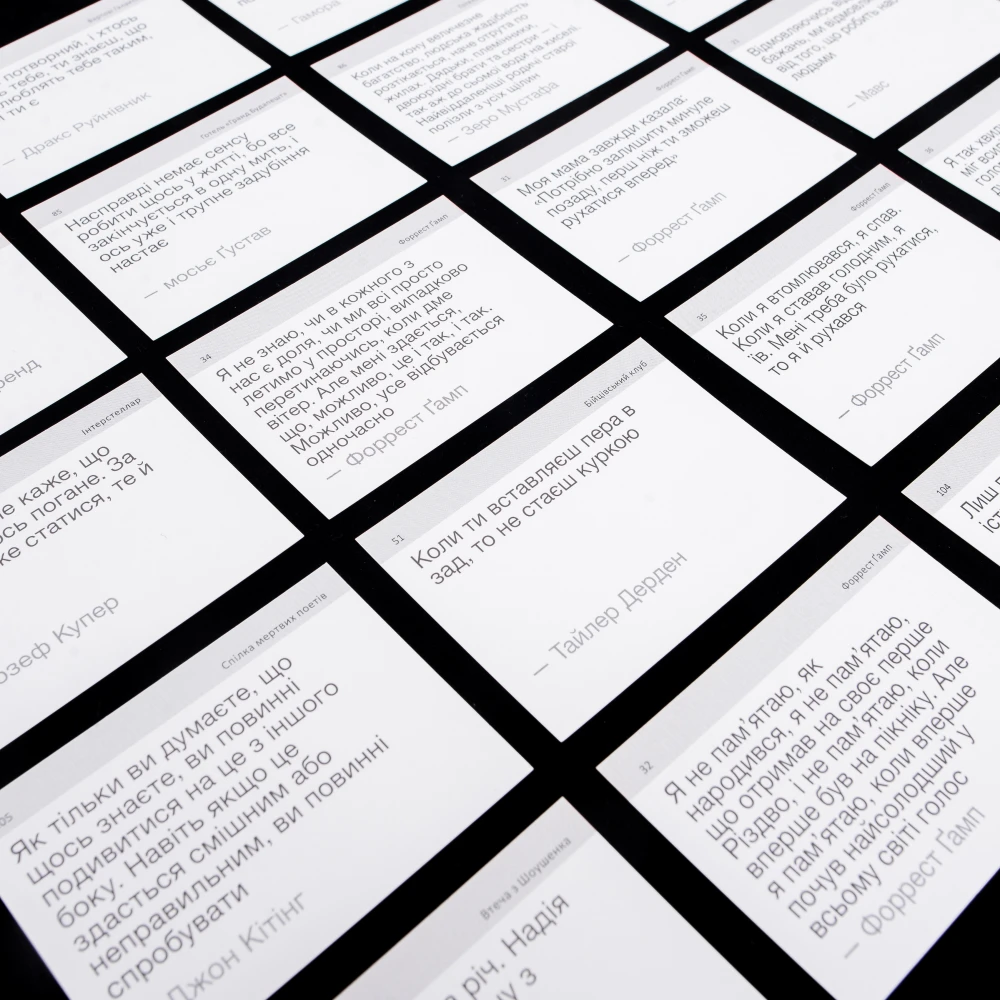 потворний, і хтось
тебе, ти знаєш, що
люблять тебе таким,
ти є
— Дракс Руйнівник
— Гамора
Коли на кону величезне
багатство, людська жадібність
розтікається, наче отрута по
жилах. Дядьки, племінники,
двоюрідні брати та сестри – і
так аж до сьомої води на киселі.
Найвіддаленіші родичі старої
полізли з усіх щілин
— Зеро Мустафа
Відмовляючись від
бажань, ми відмовля
від того, що робить нас
людьми
— Маес
Готель «Гранд Будапешт»
85
Насправді немає сенсу
робити щось у житті, бо все
закінчується в одну мить, і
ось уже і трупне задубіння
настає
— мосьє Ґустав
Форрест Ґамп
31
Моя мама завжди казала:
«Потрібно залишити минуле
позаду, перш ніж ти зможеш
рухатися вперед»
— Форрест Ґамп
36
Я так
міг
Форрест Ґамп
34
Я не знаю, чи в кожного з
нас є доля, чи ми всі просто
летимо у просторі, випадково
перетинаючись, коли дме
вітер. Але мені здається,
що, можливо, це і так, і так.
Можливо, усе відбувається
одночасно
— Форрест Ґамп
Форрест Ґамп
35
Коли я втомлювався, я спав.
Коли я ставав голодним, я
їв. Мені треба було рухатися,
то я й рухався
— Форрест Ґамп
ренд
Інтерстеллар
не каже, що
ось погане. За
же статися, те й
озеф Купер
Бійцівський клуб
51
Коли ти вставляєш пера в
зад, то не стаєш куркою
— Тайлер Дерден
104
Лиш
іс
Спілка мертвих поетів
05
Як тільки ви думаєте, що
щось знаєте, ви повинні
подивитися на це з іншого
боку. Навіть якщо це
здасться смішним або
неправильним, ви повинні
спробувати
Джон Кітінг
Форрест Ґамп
32
Я не пам'ятаю, як
народився, я не пам'ятаю,
що отримав на своє перше
Різдво, і не пам'ятаю, коли
вперше був на пікніку. Але
я пам'ятаю, коли вперше
почув найсолодший у
всьому світі голос
— Форрест Ґамп
Втеча з Шоушенка
річ. Надія
у з